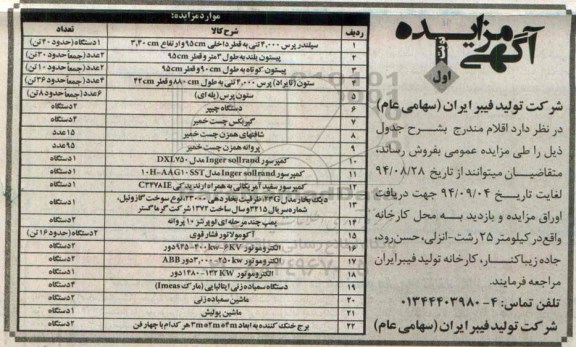 آگهی مزایده
نوبت اول
شرکت تولید فیبر ایران (سهامی عام)
در نظر دارد اقلام مندرج بشرح جدول
ذیل را طی مزایده عمومی بفروش رساند،
متقاضیان میتوانند از تاریخ ۹۴/۰۸/۲۸
لغایت تاریخ ۹۴/۰۹/۰۴ جهت دریافت
اوراق مزایده و بازدید به محل کارخانه
واقع در کیلومتر ۲۵ رشت-انزلی، حسن رود،
جاده زیباکنار، کارخانه تولید فیبر ایران
مراجعه فرمایند.
تلفن تماس: ۴-۰۱۳۴۴۴۰۳۹۸۰
شرکت تولید فیبر ایران (سهامی عام)
موارد مزایده:
ردیف شرح کالا تعداد
۱ سیلندر پرس ۴,۰۰۰ تنی به قطر داخلی ۹۵cm و ارتفاع ۳,۴۰ cm ۱ دستگاه (حدود ۴۰ تن)
۲ پیستون بلند به طول ۳ متر و قطر ۹۵cm ۲ عدد (جمعاً حدود ۳۰ تن)
۳ پیستون کوتاه به طول ۹۰cm و قطر ۹۵cm ۲ عدد (جمعاً حدود ۱۰ تن)
۴ ستون (تایراد) پرس ۴,۰۰۰ تنی به طول ۸۸۰cm و قطر ۴۲cm ۴ عدد (جمعاً حدود ۳۶ تن)
۵ ستون پرس (پله ای) ۶ عدد (جمعاً حدود ۸ تن)
۶ دستگاه چیپر ۲ دستگاه
۷ گیربکس چست خمیر ۲ دستگاه
۸ شافتهای همزن چست خمیر ۱۵ عدد
۹ پروانه همزن چست خمیر ۹۵ عدد
۱۰ کمپرسور Inger sollrand مدل DXL۷۵۰ ۱ دستگاه
۱۱ کمپرسور Inger sollrand مدل ۱۰H-AAG۱۰SST ۱ دستگاه
۱۲ کمپرسور سفید آمریکائی به همراه ارند یدکی C۳۴۷۸IE ۲ دستگاه
۱۳ دیگ بخار مدل ۴۳G، ظرفیت بخاردهی ۲۳۰۰۰، نوع سوخت گازوئیل، شماره سریال ۳۲۱۵ و سال ساخت ۱۳۷۲ شرکت گرماگستر ۱ دستگاه
۱۴ پمپ چند مرحله ای لویرشتز ۱۰ پروانه ۲ دستگاه
۱۵ آکومولاتور فشار قوی ۲ دستگاه (حدود ۱۶ تن)
۱۶ الکتروموتور ۶KV-۴۰۰kw-۹۳۵ دور ۲ دستگاه
۱۷ الکتروموتور ۲۵۰kw-۳,۰۰۰ دور ABB ۲ دستگاه
۱۸ الکتروموتور ۱۳۲KW-۱۴۸۰ دور ۱ دستگاه
۱۹ دستگاه سمباده زنی ایتالیایی (مارک Imeas) ۳ دستگاه
۲۰ ماشین سمباده زنی ۲ دستگاه
۲۱ ماشین پولیش ۱ دستگاه
۲۲ برج خنک کننده به ابعاد ۳m*۵m*۲m هر کدام با چهار فن ۲ دستگاه